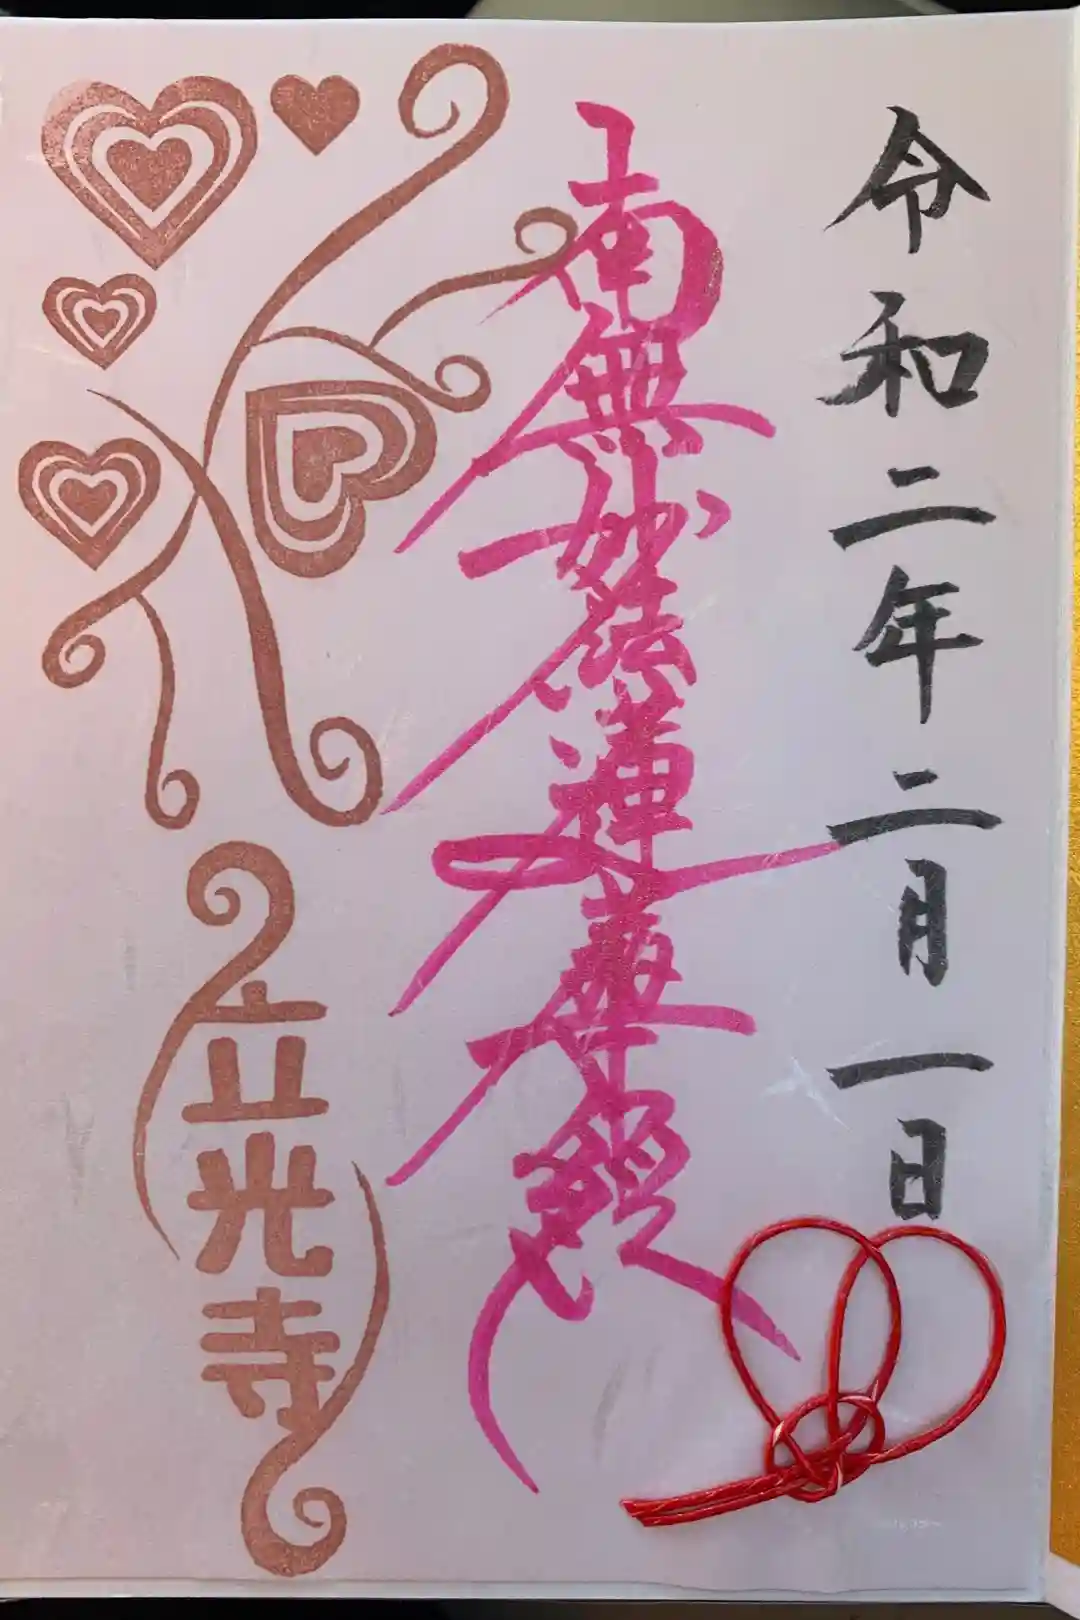 令和二年二月一日
南無妙法蓮華経
立光寺